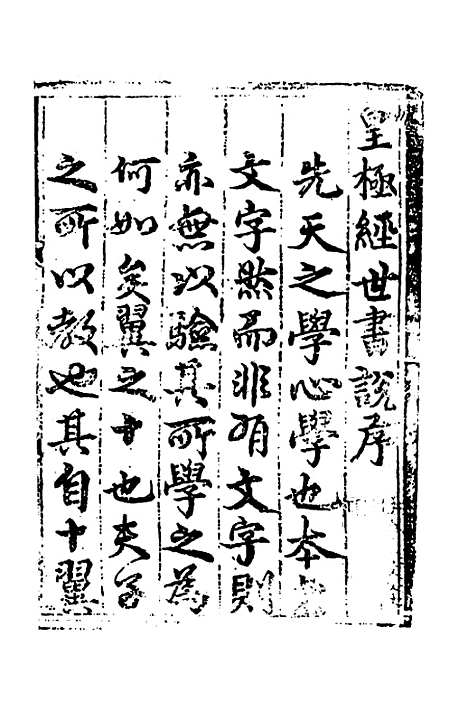 皇極經世書說序
先天之學心學也本
文字然而非有文字則
亦無以驗其所學之為
何如矣翼之十也夫
之所以教也其自十翼